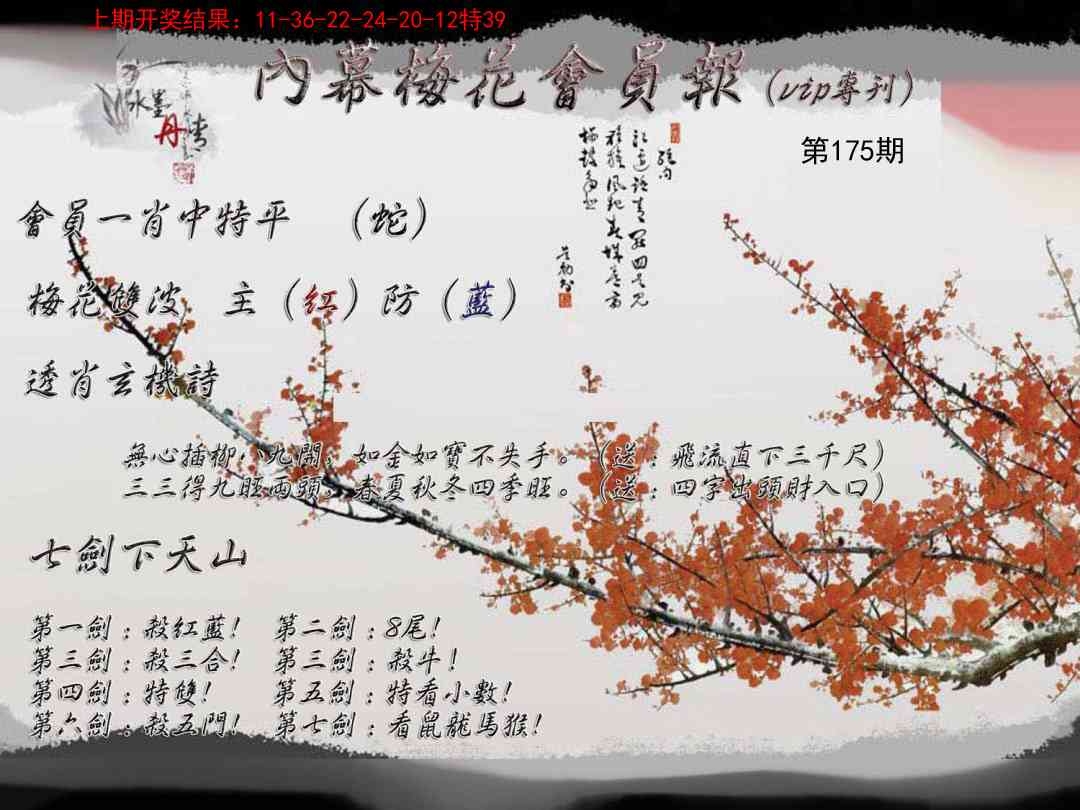 上期开奖结果：11-36-22-24-20-12特39
內幕梅花會員報（vip專刊）
水墨丹情
第175期
會員一肖中特平　（蛇）
梅花雙波　主（紅）防（藍）
透肖玄機詩
無心插柳八九開，如金如寶不失手。（送：飛流直下三千尺）
三三得九旺兩頭，春夏秋冬四季旺。（送：四字出頭財入口）
七劍下天山
第一劍：殺紅藍！　第二劍：8尾！
第三劍：殺三合！　第三劍：殺牛！
第四劍：特雙！　第五劍：特看小數！
第六劍：殺五門！　第七劍：看鼠龍馬猴！